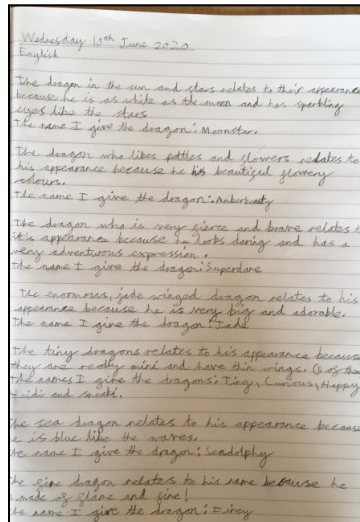 Wednesday 10th June 2020
English
The dragon in the sun and stars relates to their appearance
because he is as white as the moon and has sparkling
eyes like the stars
The name I give the dragon: Moonstar.
The dragon who likes petles and flowers relates to
his appearance because he his beautiful flowery
colours.
The name I give the dragon:
The dragon who is very fierce and brave relates t
it's appearance because he looks daring and has a
very adventurous expression.
The name I give the dragon: Superdare
The enormous, jade winged dragon relates to his
appearance because he is very big and adorable.
The name I give the dragon: Jade
The tiny dragons relates to his appearance because
they are really mini and have thin wings. of the
The names I give the dragons: Tiny, Curious, Happy
and
he sea dragon relates to his appearance because
e is blue like the waves.
he name I give the dragon: Seadolphy
he fire dragon relates to his name because he
made of flame and fire!
he name I give the dragon: Firey